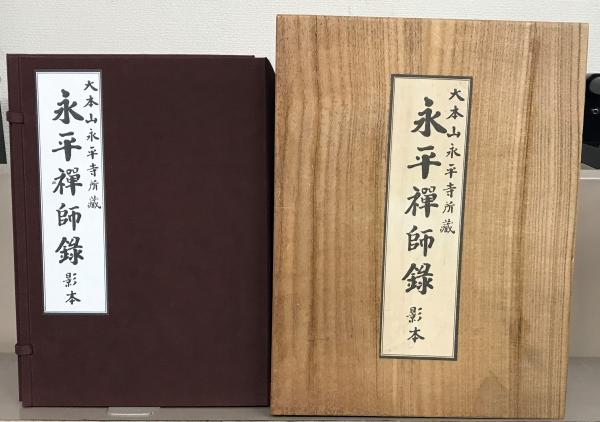 大本山永平寺所藏
永平禪師錄 影本
大本山永平寺所藏
永平禪師錄 影本